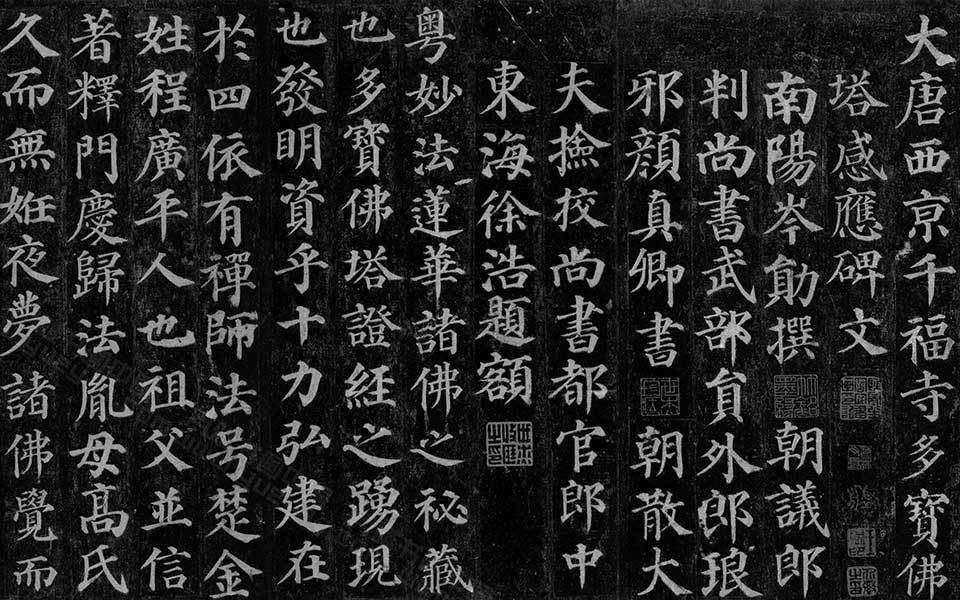 大唐西京千福寺多寶佛
塔感應碑文
南陽岑勛撰 朝議郎
判尚書武部員外郎琅
邪顏真卿書 朝散大
夫撿挍尚書都官郎中
東海徐浩題額
粵妙法蓮華諸佛之秘藏
也多寶佛塔證經之踴現
也發明資乎十力弘建在
扵四依有禪師法号楚金
姓程廣平人也祖父並信
著釋門慶歸法胤母髙氏
久而無姙夜夢諸佛覺而